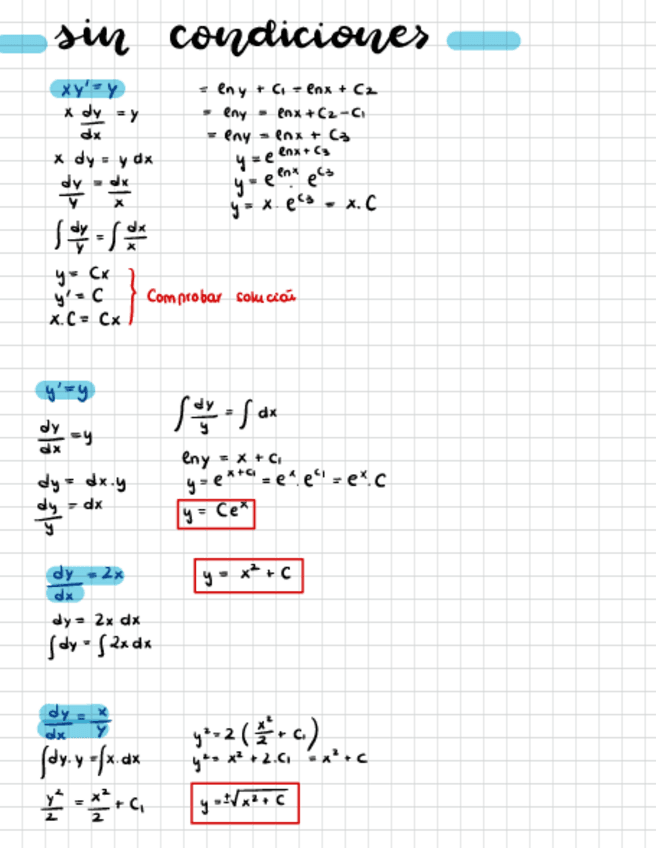 sin condiciones
xy' = y
x dy/dx = y
x dy = y dx
dy/y = dx/x
∫ dy/y = ∫ dx/x
= ln y + C₁ = ln x + C₂
= ln y = ln x + C₂ - C₁
= ln y = ln x + C₃
y = e^(ln x + C₃)
y = e^(ln x) . e^(C₃)
y = x . e^(C₃) = x . C
y = Cx
y' = C
x . C = Cx
Comprobar solución
y' = y
dy/dx = y
dy = dx . y
dy/y = dx
∫ dy/y = ∫ dx
ln y = x + C₁
y = e^(x + C₁) = e^x . e^(C₁) = e^x . C
y = Ce^x
dy/dx = 2x
dy = 2x dx
∫ dy = ∫ 2x dx
y = x² + C
dy/dx = x/y
∫ dy . y = ∫ x . dx
y²/2 = x²/2 + C₁
y² = 2 (x²/2 + C₁)
y² = x² + 2 . C₁ = x² + C
y = ±√(x² + C)